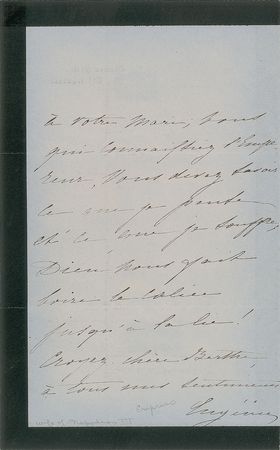 à votre Mari, vous
qui connaissiez l'Empe
reur, vous devez savoir
ce que je pense
et ce que je souffre,
Dieu nous fait
boire le calice
jusqu'à la lie!
Croyez, chère Berthe,
à tous mes sentiments
Eugénie
Empress
wife of Napoleon III